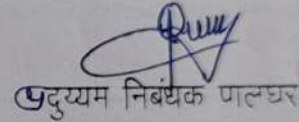 दुय्यम निबंधक पालघर